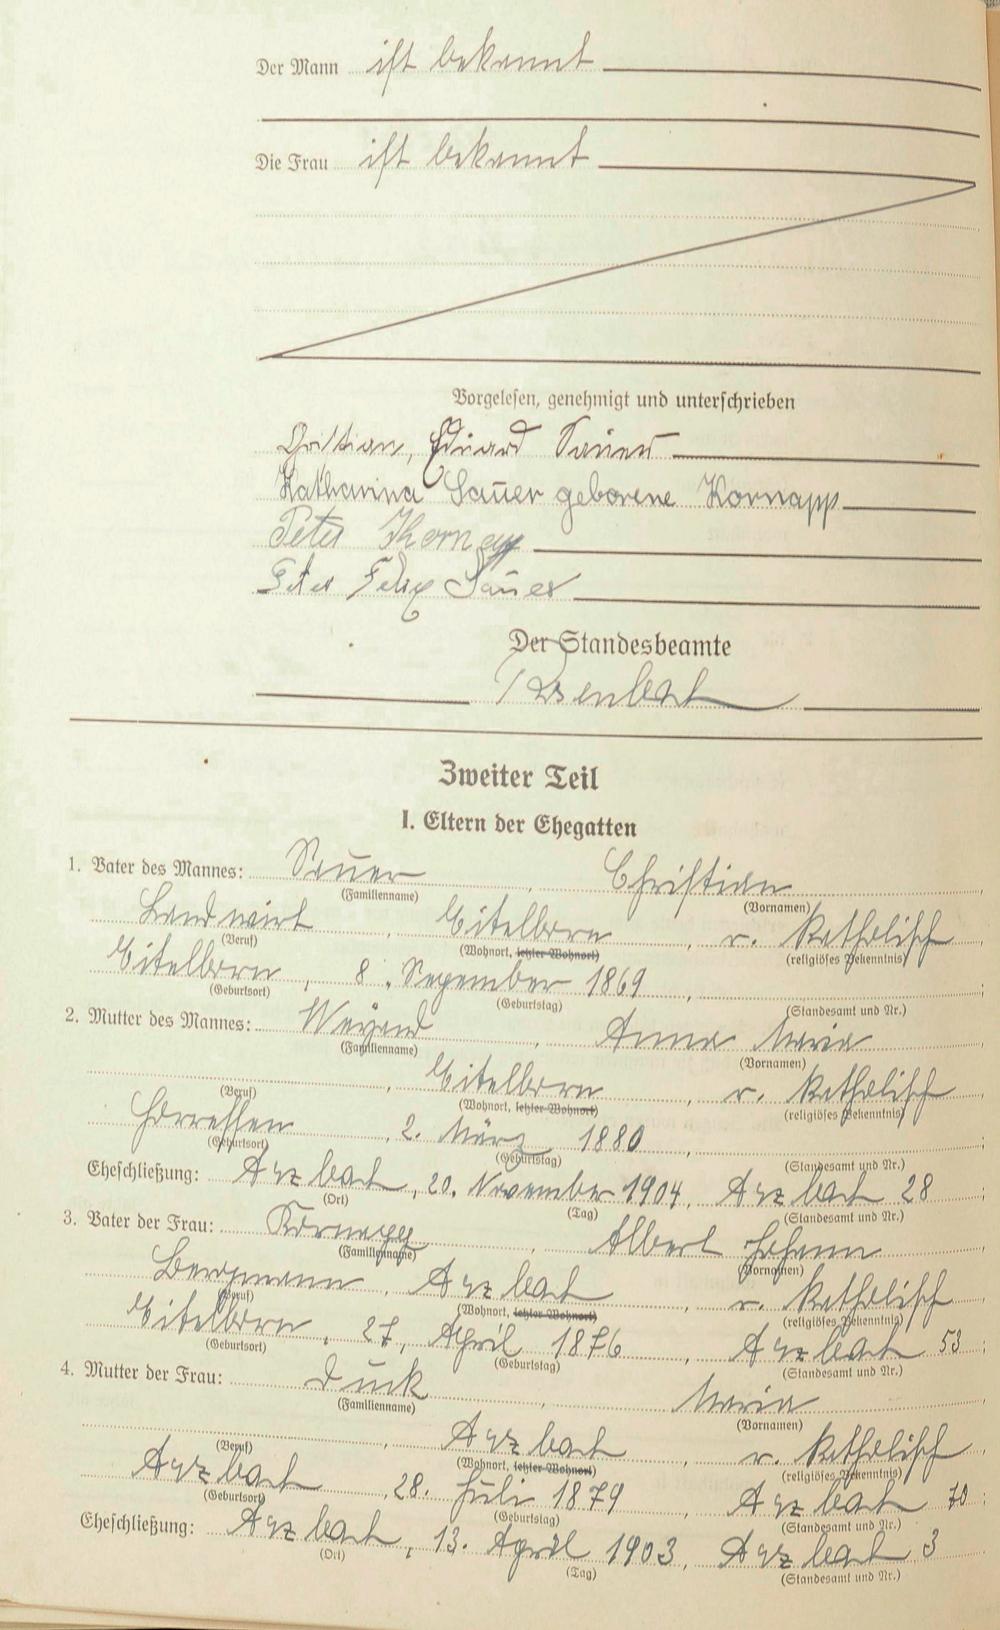 Der Mann ist bekannt
Die Frau ist bekannt
Vorgelesen, genehmigt und unterschrieben
Christian, Eduard Sauer
Katharina Sauer geborene Kornapp
Peter Kornapp
Peter Felix Sauer
Der Standesbeamte
Zweiter Teil
I. Eltern der Ehegatten
1. Vater des Mannes: Sauer, Christian
(Familienname) (Vornamen)
Landwirt, Eitelborn, r. katholisch
(Beruf) (Wohnort, letzter Wohnort) (religiöses Bekenntnis)
Eitelborn, 8. September 1869,
(Geburtsort) (Geburtstag) (Standesamt und Nr.)
2. Mutter des Mannes: Weyand, Anna Maria
(Familienname) (Vornamen)
, Eitelborn, r. katholisch
(Beruf) (Wohnort, letzter Wohnort) (religiöses Bekenntnis)
Horressen, 2. März 1880,
(Geburtsort) (Geburtstag) (Standesamt und Nr.)
Eheschließung: Arzbach, 20. November 1904, Arzbach 28;
(Ort) (Tag) (Standesamt und Nr.)
3. Vater der Frau: Kornapp, Albert Johann
(Familienname) (Vornamen)
Bergmann, Arzbach, r. katholisch
(Beruf) (Wohnort, letzter Wohnort) (religiöses Bekenntnis)
Eitelborn, 27. April 1876, Arzbach 53;
(Geburtsort) (Geburtstag) (Standesamt und Nr.)
4. Mutter der Frau: Duck, Maria
(Familienname) (Vornamen)
, Arzbach, r. katholisch
(Beruf) (Wohnort, letzter Wohnort) (religiöses Bekenntnis)
Arzbach, 28. Juli 1879, Arzbach 70;
(Geburtsort) (Geburtstag) (Standesamt und Nr.)
Eheschließung: Arzbach, 13. April 1903, Arzbach 3
(Ort) (Tag) (Standesamt und Nr.)